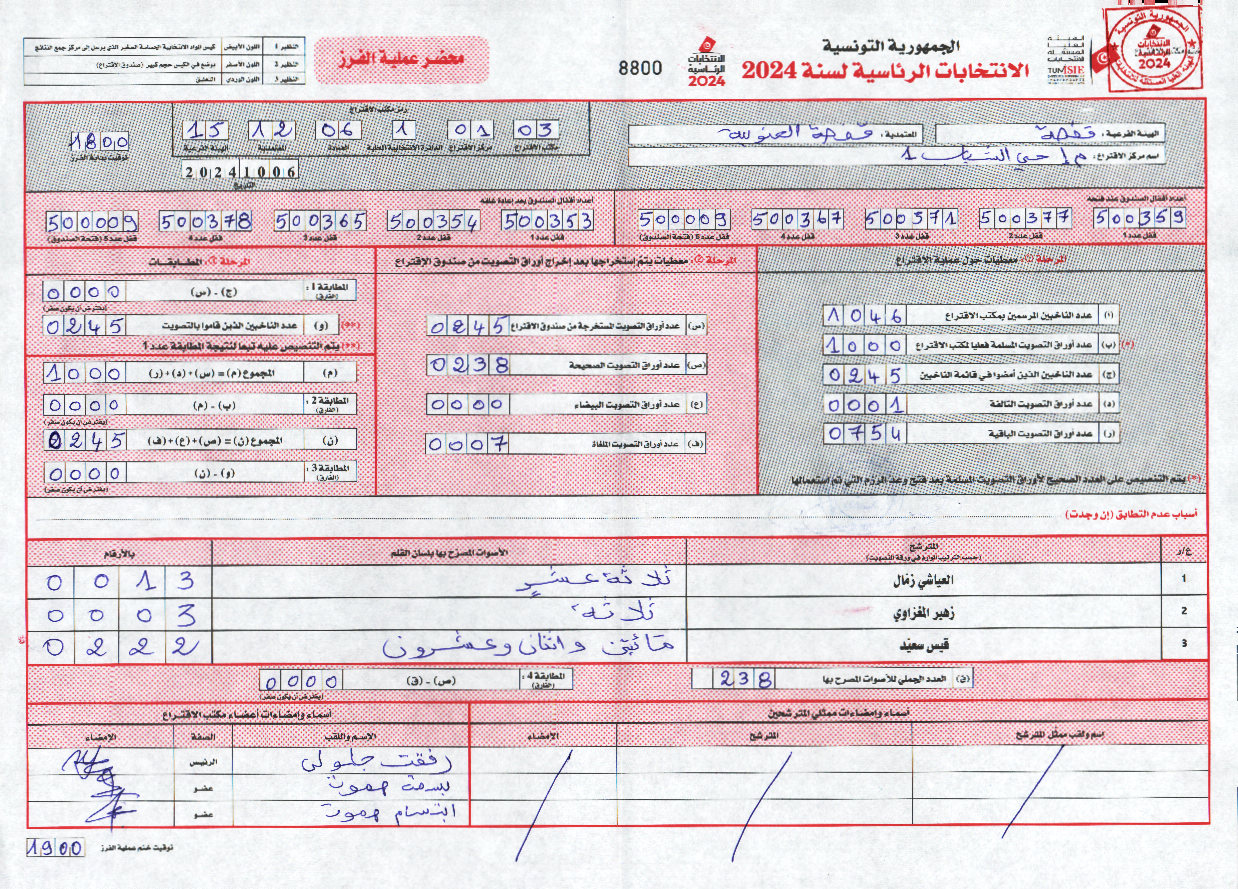 الجمهورية التونسية
الانتخابات الرئاسية لسنة 2024
الانتخابات الرئاسية 2024
8800
محضر عملية الفرز
النظير 1 اللون الأبيض كيس المواد الانتخابية الحساسة الصغير الذي يرسل إلى مركز جمع النتائج
النظير 2 اللون الأصفر يوضع في الكيس حجم كبير (صندوق الاقتراع)
النظير 3 اللون الوردي التعليق
الهيئة الفرعية : قفصة
المعتمدية : قفصة الجنوبية
اسم مركز الاقتراع : م إ حي الشباب 1
رمز مكتب الاقتراع
03 01 1 06 12 15
مكتب الاقتراع مركز الاقتراع الدائرة الانتخابية المحلية العمادة المعتمدية الهيئة الفرعية
20241006
التاريخ
1800
توقيت بداية الفرز
أعداد أقفال الصندوق عند فتحه
500359 500377 500371 500367 500009
قفل عدد 1 قفل عدد 2 قفل عدد 3 قفل عدد 4 قفل عدد 5 (فتحة الصندوق)
أعداد أقفال الصندوق بعد إعادة غلقه
500353 500354 500365 500378 500009
قفل عدد 1 قفل عدد 2 قفل عدد 3 قفل عدد 4 قفل عدد 5 (فتحة الصندوق)
المرحلة (1): معطيات حول عملية الاقتراع
(أ) عدد الناخبين المرسمين بمكتب الاقتراع 1046
(*) (ب) عدد أوراق التصويت المسلمة فعليا لمكتب الاقتراع 1000
(ج) عدد الناخبين الذين أمضوا في قائمة الناخبين 0245
(د) عدد أوراق التصويت التالفة 0001
(ر) عدد أوراق التصويت الباقية 0754
(*) يتم التنصيص على العدد الصحيح لأوراق التصويت المسلمة بعد فتح وعد الرزم التي تم استعمالها
المرحلة (2): معطيات يتم إستخراجها بعد إخراج أوراق التصويت من صندوق الإقتراع
(س) عدد أوراق التصويت المستخرجة من صندوق الاقتراع 0245
(ص) عدد أوراق التصويت الصحيحة 0238
(ع) عدد أوراق التصويت البيضاء 0000
(ف) عدد أوراق التصويت الملغاة 0007
المطابقات
المطابقة 1 : (الفارق) (ج) - (س) 0000
(يفترض أن يكون صفر)
(**) (و) عدد الناخبين الذين قاموا بالتصويت 0245
(**) يتم التنصيص عليه تبعا لنتيجة المطابقة عدد 1
(م) المجموع (م) = (س)+(د)+(ر) 1000
المطابقة 2 : (الفارق) (ب) - (م) 0000
(يفترض أن يكون صفر)
(ن) المجموع (ن) = (ص)+(ع)+(ف) 0245
المطابقة 3 : (الفارق) (و) - (ن) 0000
(يفترض أن يكون صفر)
أسباب عدم التطابق (إن وجدت)
ع/ر المترشح (حسب الترتيب الوارد في ورقة التصويت) الأصوات المصرح بها بلسان القلم بالأرقام
1 العياشي زمال ثلاثة عشر 0013
2 زهير المغزاوي ثلاثة 0003
3 قيس سعيد مائتين واثنان وعشرون 0222
(ق) العدد الجملي للأصوات المصرح بها 238
المطابقة 4 : (الفارق) (ص) - (ق) 0000
(يفترض أن يكون صفر)
أسماء وإمضاءات ممثلي المترشحين
اسم ولقب ممثل المترشح المترشح الإمضاء
أسماء وإمضاءات أعضاء مكتب الاقتراع
الاسم واللقب الصفة الإمضاء
جلولي الرئيس
بسمة عضو
ابتسام عضو
توقيت ختم عملية الفرز 1900